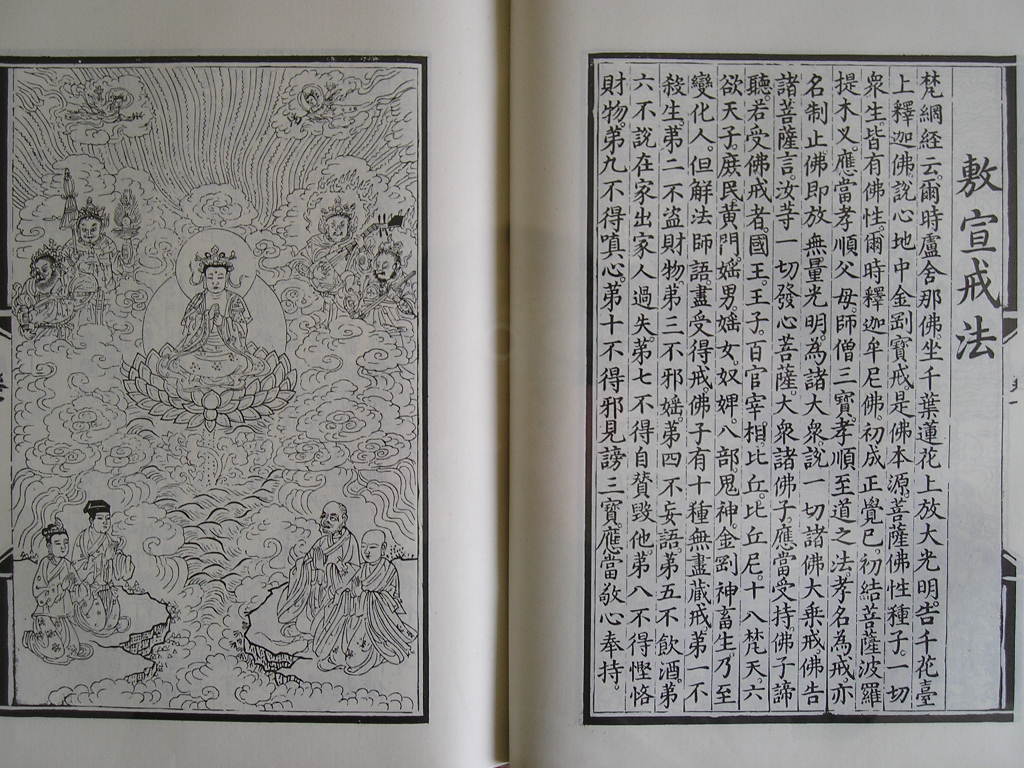 敷宣戒法
梵網經云。爾時盧舍那佛。坐千葉蓮花上放大光明。告千花臺
上釋迦佛。說心地中金剛寶戒。是佛本源。菩薩佛性種子。一切
衆生皆有佛性。爾時釋迦牟尼佛。初成正覺已。初結菩薩波羅
提木叉。應當孝順父母。師僧三寶。孝順至道之法孝名為戒亦
名制止佛即放無量光明。為諸大衆。說一切諸佛大乘戒佛告
諸菩薩言。汝等一切發心菩薩。大衆諸佛子。應當受持佛子諦
聽。若受佛戒者。國王。王子。百官宰相。比丘。比丘尼。十八梵天。六
欲天子。庶民黃門。婬男婬女。奴婢。八部。鬼神。金剛神畜生。乃至
變化人。但解法師語。盡受得戒。佛子有十種無盡藏戒。第一不
殺生。第二不盜財物。第三不邪婬。第四不妄語。第五不飲酒。第
六不說在家出家人過失。第七不得自贊毀他。第八不得慳悋
財物。第九不得嗔心。第十不得邪見謗三寶。應當敬心奉持。